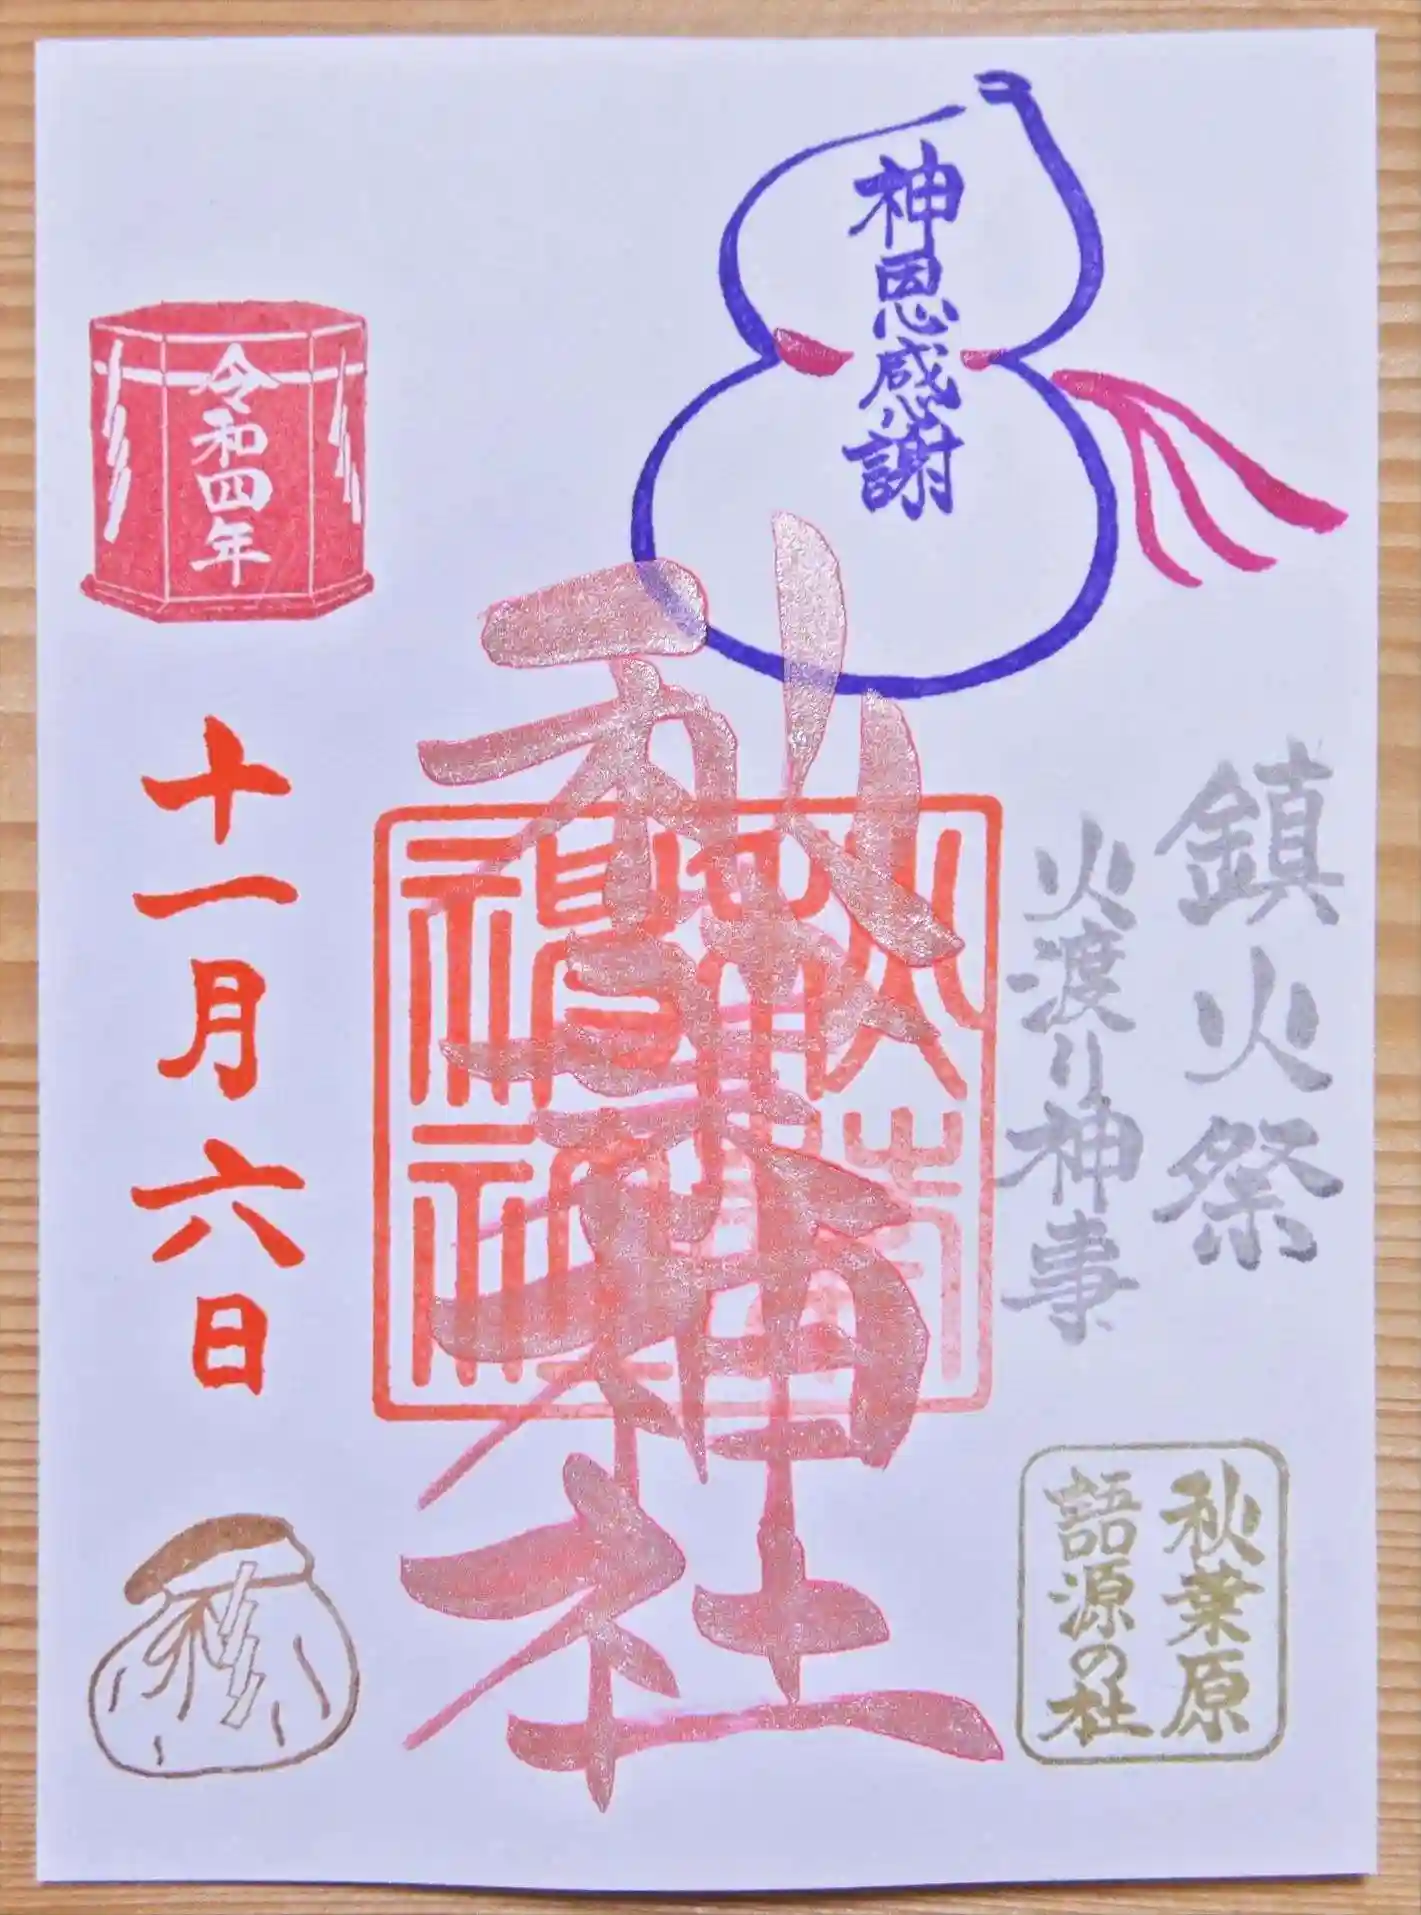 神恩感謝
鎮火祭
火渡り神事
秋葉原
語源の杜
秋葉神社
令和四年
十一月六日